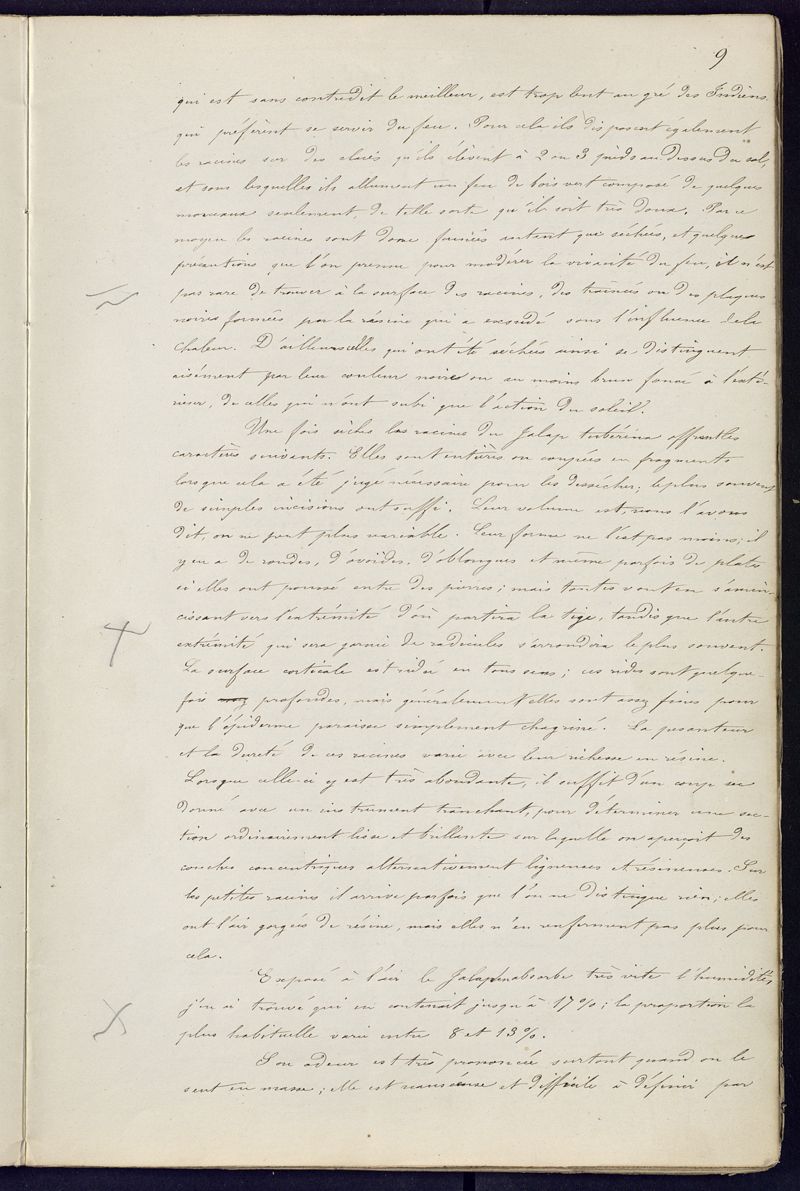 9
qui est sans contredit le meilleur, est trop lent au gré des Indiens
qui préfèrent se servir du feu. Pour cela ils disposent également
les racines sur des claies qu'ils élèvent à 2 ou 3 pieds au dessus du sol,
et sous lesquelles ils allument un feu de bois vert composé de quelques
morceaux seulement, de telle sorte qu'il soit très doux. Par ce
moyen les racines sont donc fumées autant que séchées, et quelques
précautions que l'on prenne pour modérer la vivacité du feu, il n'est
pas rare de trouver à la surface des racines, des trainées ou des plaques
noires formées par la résine qui a exsudé sous l'influence de la
chaleur. D'ailleurs celles qui ont été séchées ainsi se distinguent
aisément par leur couleur noire ou au moins brun foncé à l'exté-
rieur, de celles qui n'ont subi que l'action du soleil.
Une fois sèches les racines du Jalap tubéreux offrent les
caractères suivants. Elles sont entières ou coupées en fragments
lorsque cela a été jugé nécessaire pour les dessécher; le plus souvent
de simples incisions ont suffi. Leur volume est, nous l'avons
dit, on ne peut plus variable. Leur forme ne l'est pas moins; il
y en a de rondes, d'ovoïdes, d'oblongues et même parfois de plates
si elles ont poussé entre des pierres; mais toutes vont en s'amin-
cissant vers l'extrémité d'où partira la tige, tandis que l'autre
extrémité qui sera garnie de radicules s'arrondira le plus souvent.
La surface corticale est ridée en tous sens; ces rides sont quelque-
fois profondes, mais généralement elles sont assez fines pour
que l'épiderme paraisse simplement chagriné. La pesanteur
et la dureté de ces racines varie avec leur richesse en résine.
Lorsque celle-ci y est très abondante, il suffit d'un coup sec
donné avec un instrument tranchant, pour déterminer une sec-
tion ordinairement lisse et brillante sur laquelle on aperçoit des
couches concentriques alternativement ligneuses et résineuses. Sur
les petites racines il arrive parfois que l'on ne distingue rien; elles
ont l'air gorgées de résine, mais elles n'en renferment pas plus pour
cela.
Exposé à l'air le Jalap absorbe très vite l'humidité,
j'en ai trouvé qui en contenait jusqu'à 17 %; la proportion la
plus habituelle varie entre 8 et 13 %.
Son odeur est très prononcée surtout quand on le
sent en masse; elle est nauséeuse et difficile à définir par